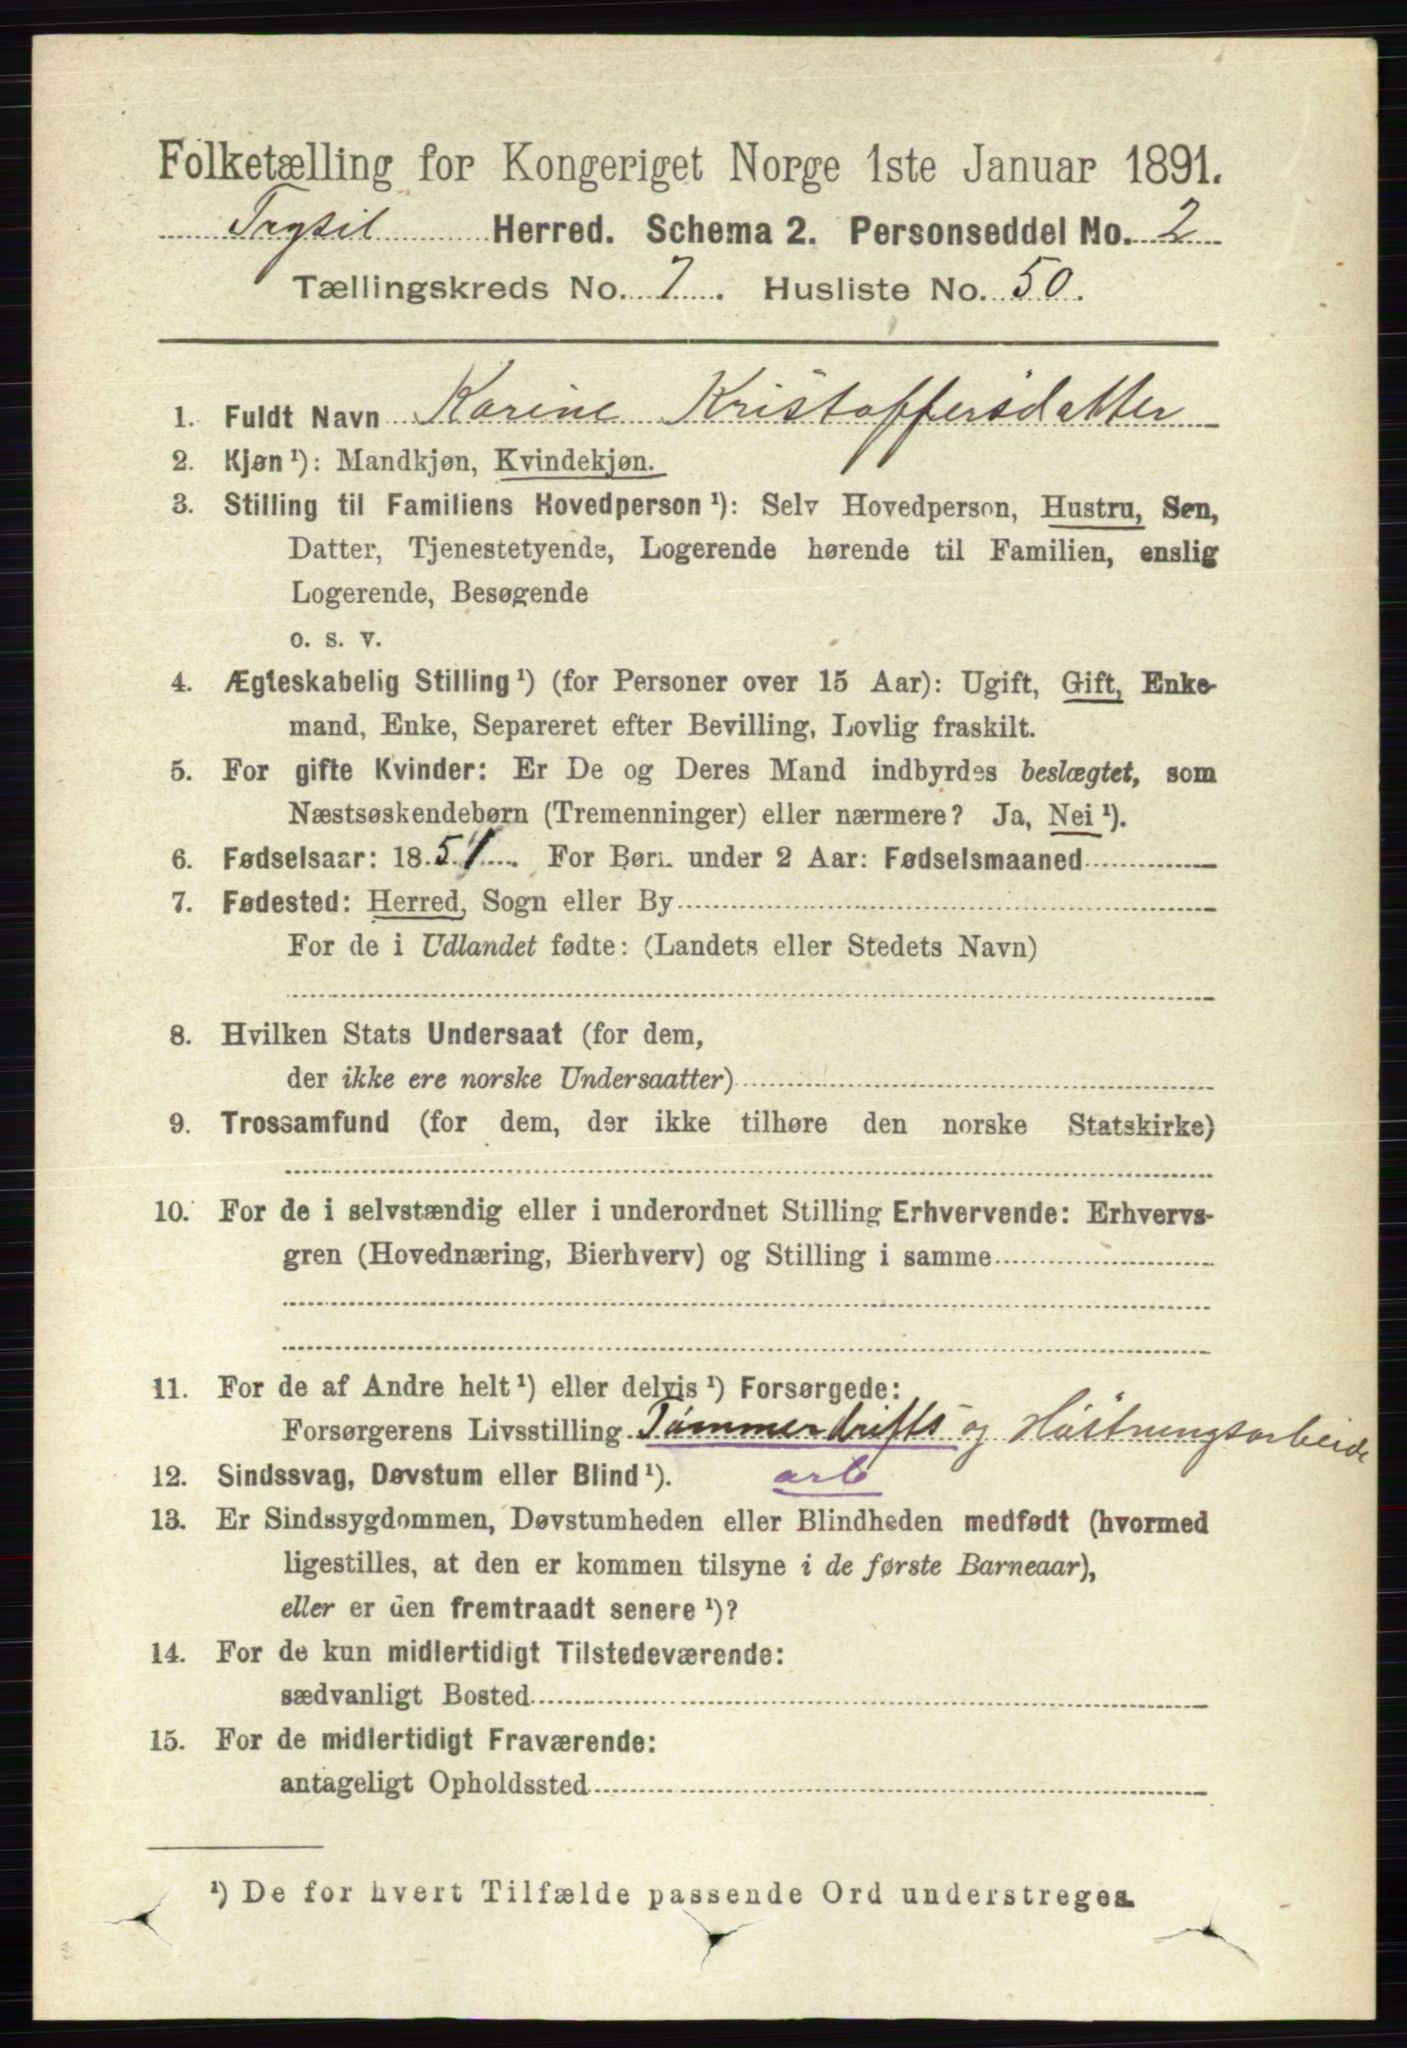 Folketælling for Kongeriget Norge 1ste Januar 1891.
Trysil Herred. Schema 2. Personseddel No. 2
Tællingskreds No. 7. Husliste No. 50.
1. Fuldt Navn Karine Kristoffersdatter
2. Kjøn ¹): Mandkjøn, Kvindekjøn.
3. Stilling til Familiens Hovedperson ¹): Selv Hovedperson, Hustru, Søn,
Datter, Tjenestetyende, Logerende hørende til Familien, enslig
Logerende, Besøgende
o. s. v.
4. Ægteskabelig Stilling ¹) (for Personer over 15 Aar): Ugift, Gift, Enke-
mand, Enke, Separeret efter Bevilling, Lovlig fraskilt.
5. For gifte Kvinder: Er De og Deres Mand indbyrdes beslægtet, som
Næstsøskendebørn (Tremenninger) eller nærmere? Ja, Nei ¹).
6. Fødselsaar: 1851. For Børn under 2 Aar: Fødselsmaaned
7. Fødested: Herred, Sogn eller By
For de i Udlandet fødte: (Landets eller Stedets Navn)
8. Hvilken Stats Undersaat (for dem,
der ikke ere norske Undersaatter)
9. Trossamfund (for dem, der ikke tilhøre den norske Statskirke)
10. For de i selvstændig eller i underordnet Stilling Erhvervende: Erhvervs-
gren (Hovednæring, Bierhverv) og Stilling i samme
11. For de af Andre helt ¹) eller delvis ¹) Forsørgede:
Forsørgerens Livsstilling Tømmerdrifts og Høstningsarbeide
12. Sindssvag, Døvstum eller Blind ¹). arb
13. Er Sindssygdommen, Døvstumheden eller Blindheden medfødt (hvormed
ligestilles, at den er kommen tilsyne i de første Barneaar),
eller er den fremtraadt senere ¹)?
14. For de kun midlertidigt Tilstedeværende:
sædvanligt Bosted
15. For de midlertidigt Fraværende:
antageligt Opholdssted
¹) De for hvert Tilfælde passende Ord understreges.